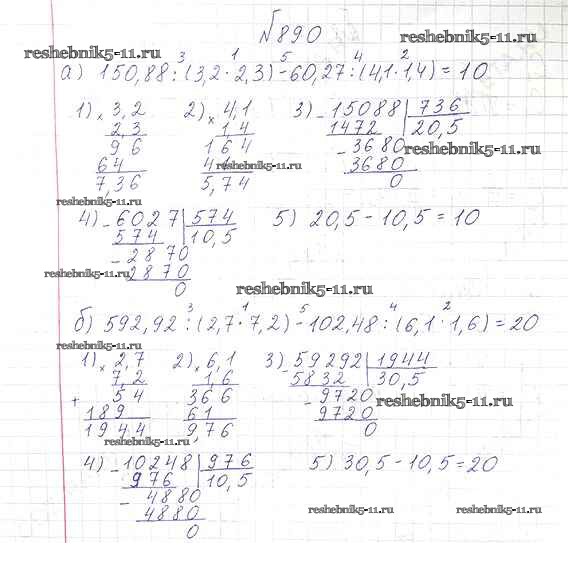 №890
reshebnik5-11.ru
3 1 5 4 2
а) 150,88:(3,2·2,3)-60,27:(4,1·1,4)=10
1) × 3,2 2) × 4,1 3) - 15088 | 736
2,3 1,4 1472 20,5
96 164 - 3680 reshebnik5-11.ru
64 41 reshebnik5-11.ru 3680
7,36 5,74 0
reshebnik5-11.ru
4) - 6027 | 574 5) 20,5-10,5=10
574 10,5
- 2870
reshebnik5-11.ru 2870
0 reshebnik5-11.ru
3 1 5 4 2
б) 592,92:(2,7·7,2)-102,48:(6,1·1,6)=20
reshebnik5-11.ru
1) × 2,7 2) × 6,1 3) - 59292 | 1944
7,2 1,6 5832 30,5
+ 54 366 - 9720
189 61 9720 reshebnik5-11.ru
1944 9,76 0
reshebnik5-11.ru
4) - 10248 | 976 5) 30,5-10,5=20
976 10,5
- 4880
4880 reshebnik5-11.ru reshebnik5-11.ru
0